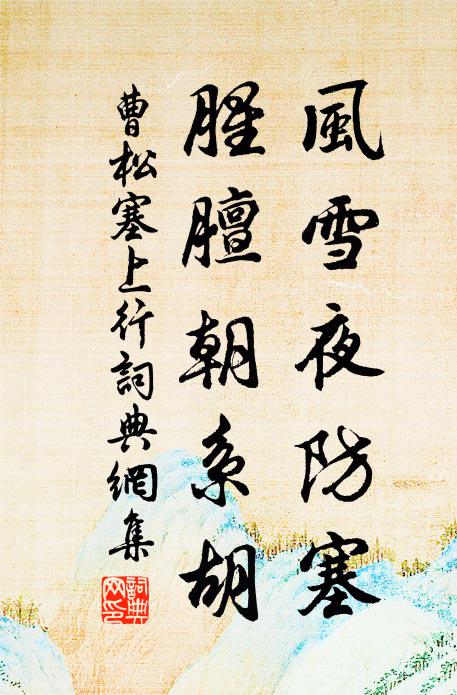 風雪夜防塞
腥膻朝系胡
曹松塞上行詞典網集
詞典網印